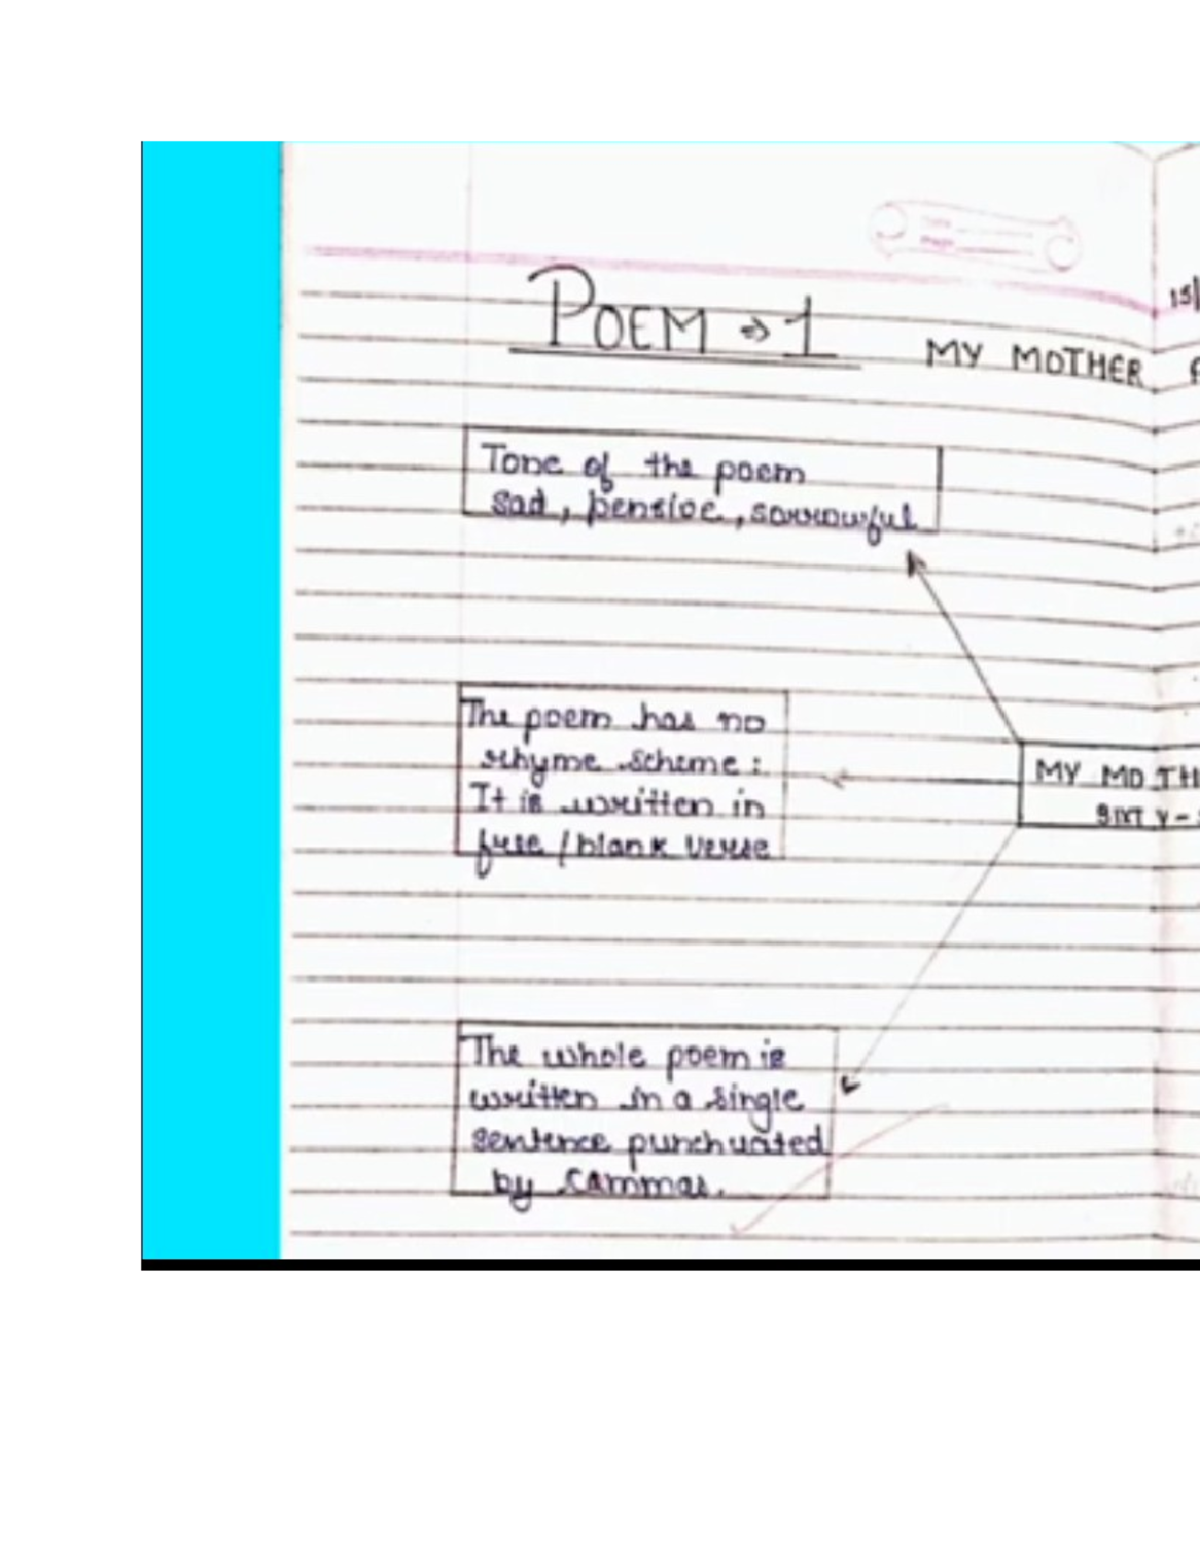 POEM ⇒ 1
MY MOTHER
15/
Tone of the poem
sad, pensive, sorrowful
The poem has no
rhyme scheme:
It is written in
free / blank verse
MY MOTH
SIXTY-
The whole poem is
written in a single
sentence punchuated
by commas.